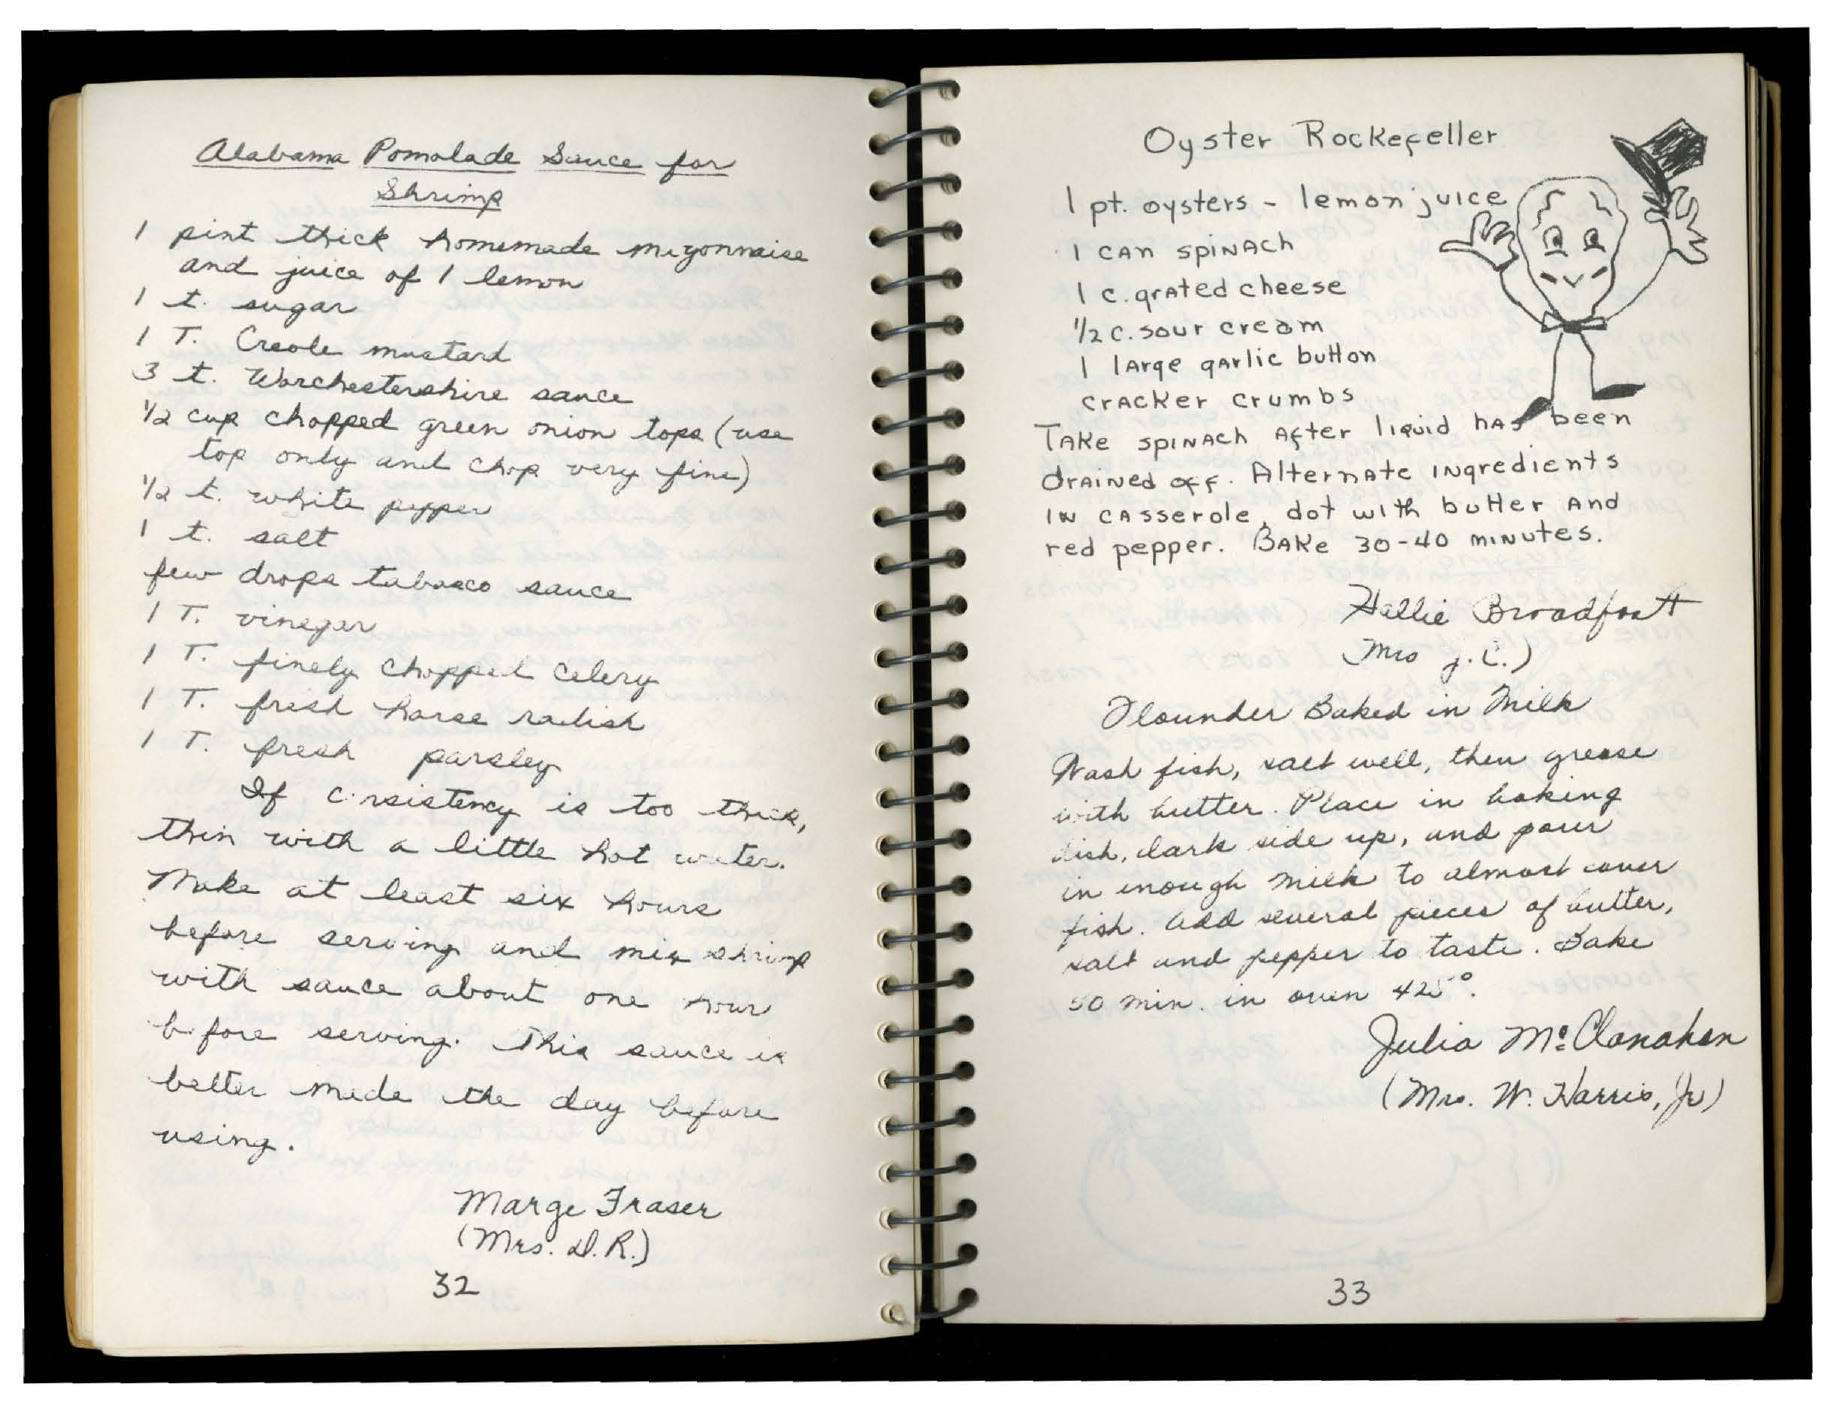 Alabama Pomolade Sauce for
Shrimp
1 pint thick homemade mayonnaise
and juice of 1 lemon
1 t. sugar
1 T. Creole mustard
3 t. Worchestershire sauce
1/2 cup chopped green onion tops (use
top only and chop very fine)
1/2 t. white pepper
1 t. salt
few drops tabasco sauce
1 T. vinegar
1 T. finely chopped celery
1 T. fresh horse radish
1 T. fresh parsley
If consistency is too thick,
thin with a little hot water.
Make at least six hours
before serving and mix shrimp
with sauce about one hour
before serving. This sauce is
better made the day before
using.
Marge Fraser
(Mrs. D.R.)
32
Oyster Rockefeller
1 pt. oysters - lemon juice
1 can spinach
1 c. grated cheese
1/2 c. sour cream
1 large garlic button
cracker crumbs
Take spinach after liquid has been
drained off. Alternate ingredients
in casserole, dot with butter and
red pepper. Bake 30-40 minutes.
Hallie Broadfoot
(Mrs J. C.)
Flounder Baked in Milk
Wash fish, salt well, then grease
with butter. Place in baking
dish, dark side up, and pour
in enough milk to almost cover
fish. Add several pieces of butter,
salt and pepper to taste. Bake
50 min. in oven 425°.
Julia McClanahan
(Mrs. W. Harris, Jr)
33